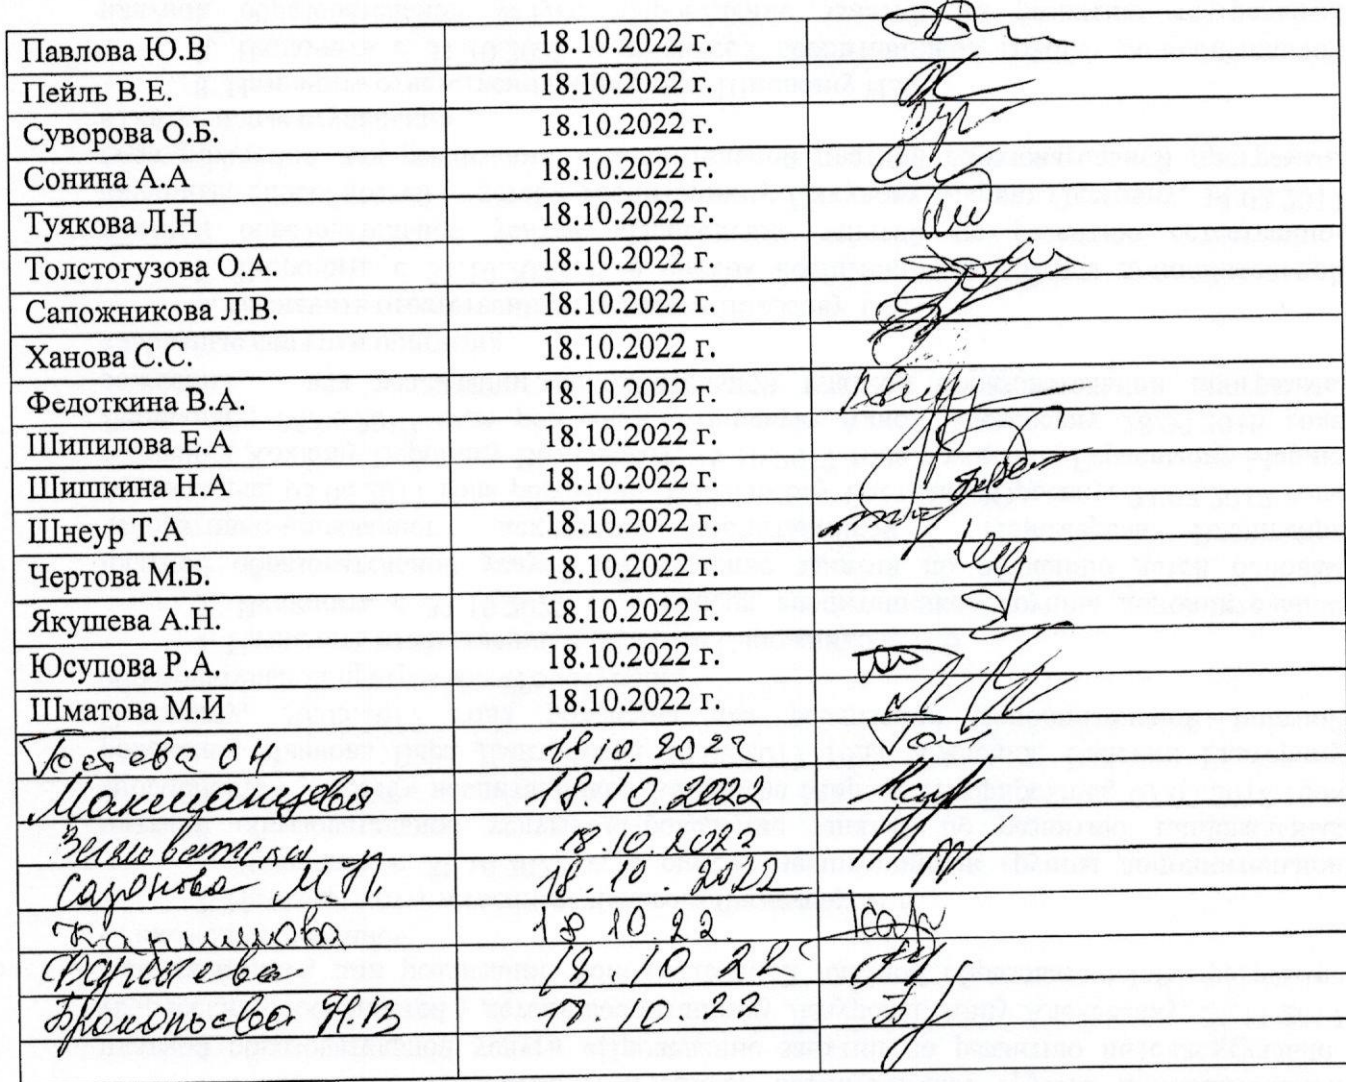 Павлова Ю.В 18.10.2022 г.
Пейль В.Е. 18.10.2022 г.
Суворова О.Б. 18.10.2022 г.
Сонина А.А 18.10.2022 г.
Туякова Л.Н 18.10.2022 г.
Толстогузова О.А. 18.10.2022 г.
Сапожникова Л.В. 18.10.2022 г.
Ханова С.С. 18.10.2022 г.
Федоткина В.А. 18.10.2022 г.
Шипилова Е.А 18.10.2022 г.
Шишкина Н.А 18.10.2022 г.
Шнеур Т.А 18.10.2022 г.
Чертова М.Б. 18.10.2022 г.
Якушева А.Н. 18.10.2022 г.
Юсупова Р.А. 18.10.2022 г.
Шматова М.И 18.10.2022 г.
Гостева О Н 18.10.2022
18.10.2022
18.10.2022
Сазонова М.П. 18.10.2022
18.10.22.
18.10.22
Прокопьева Н.В 10.22